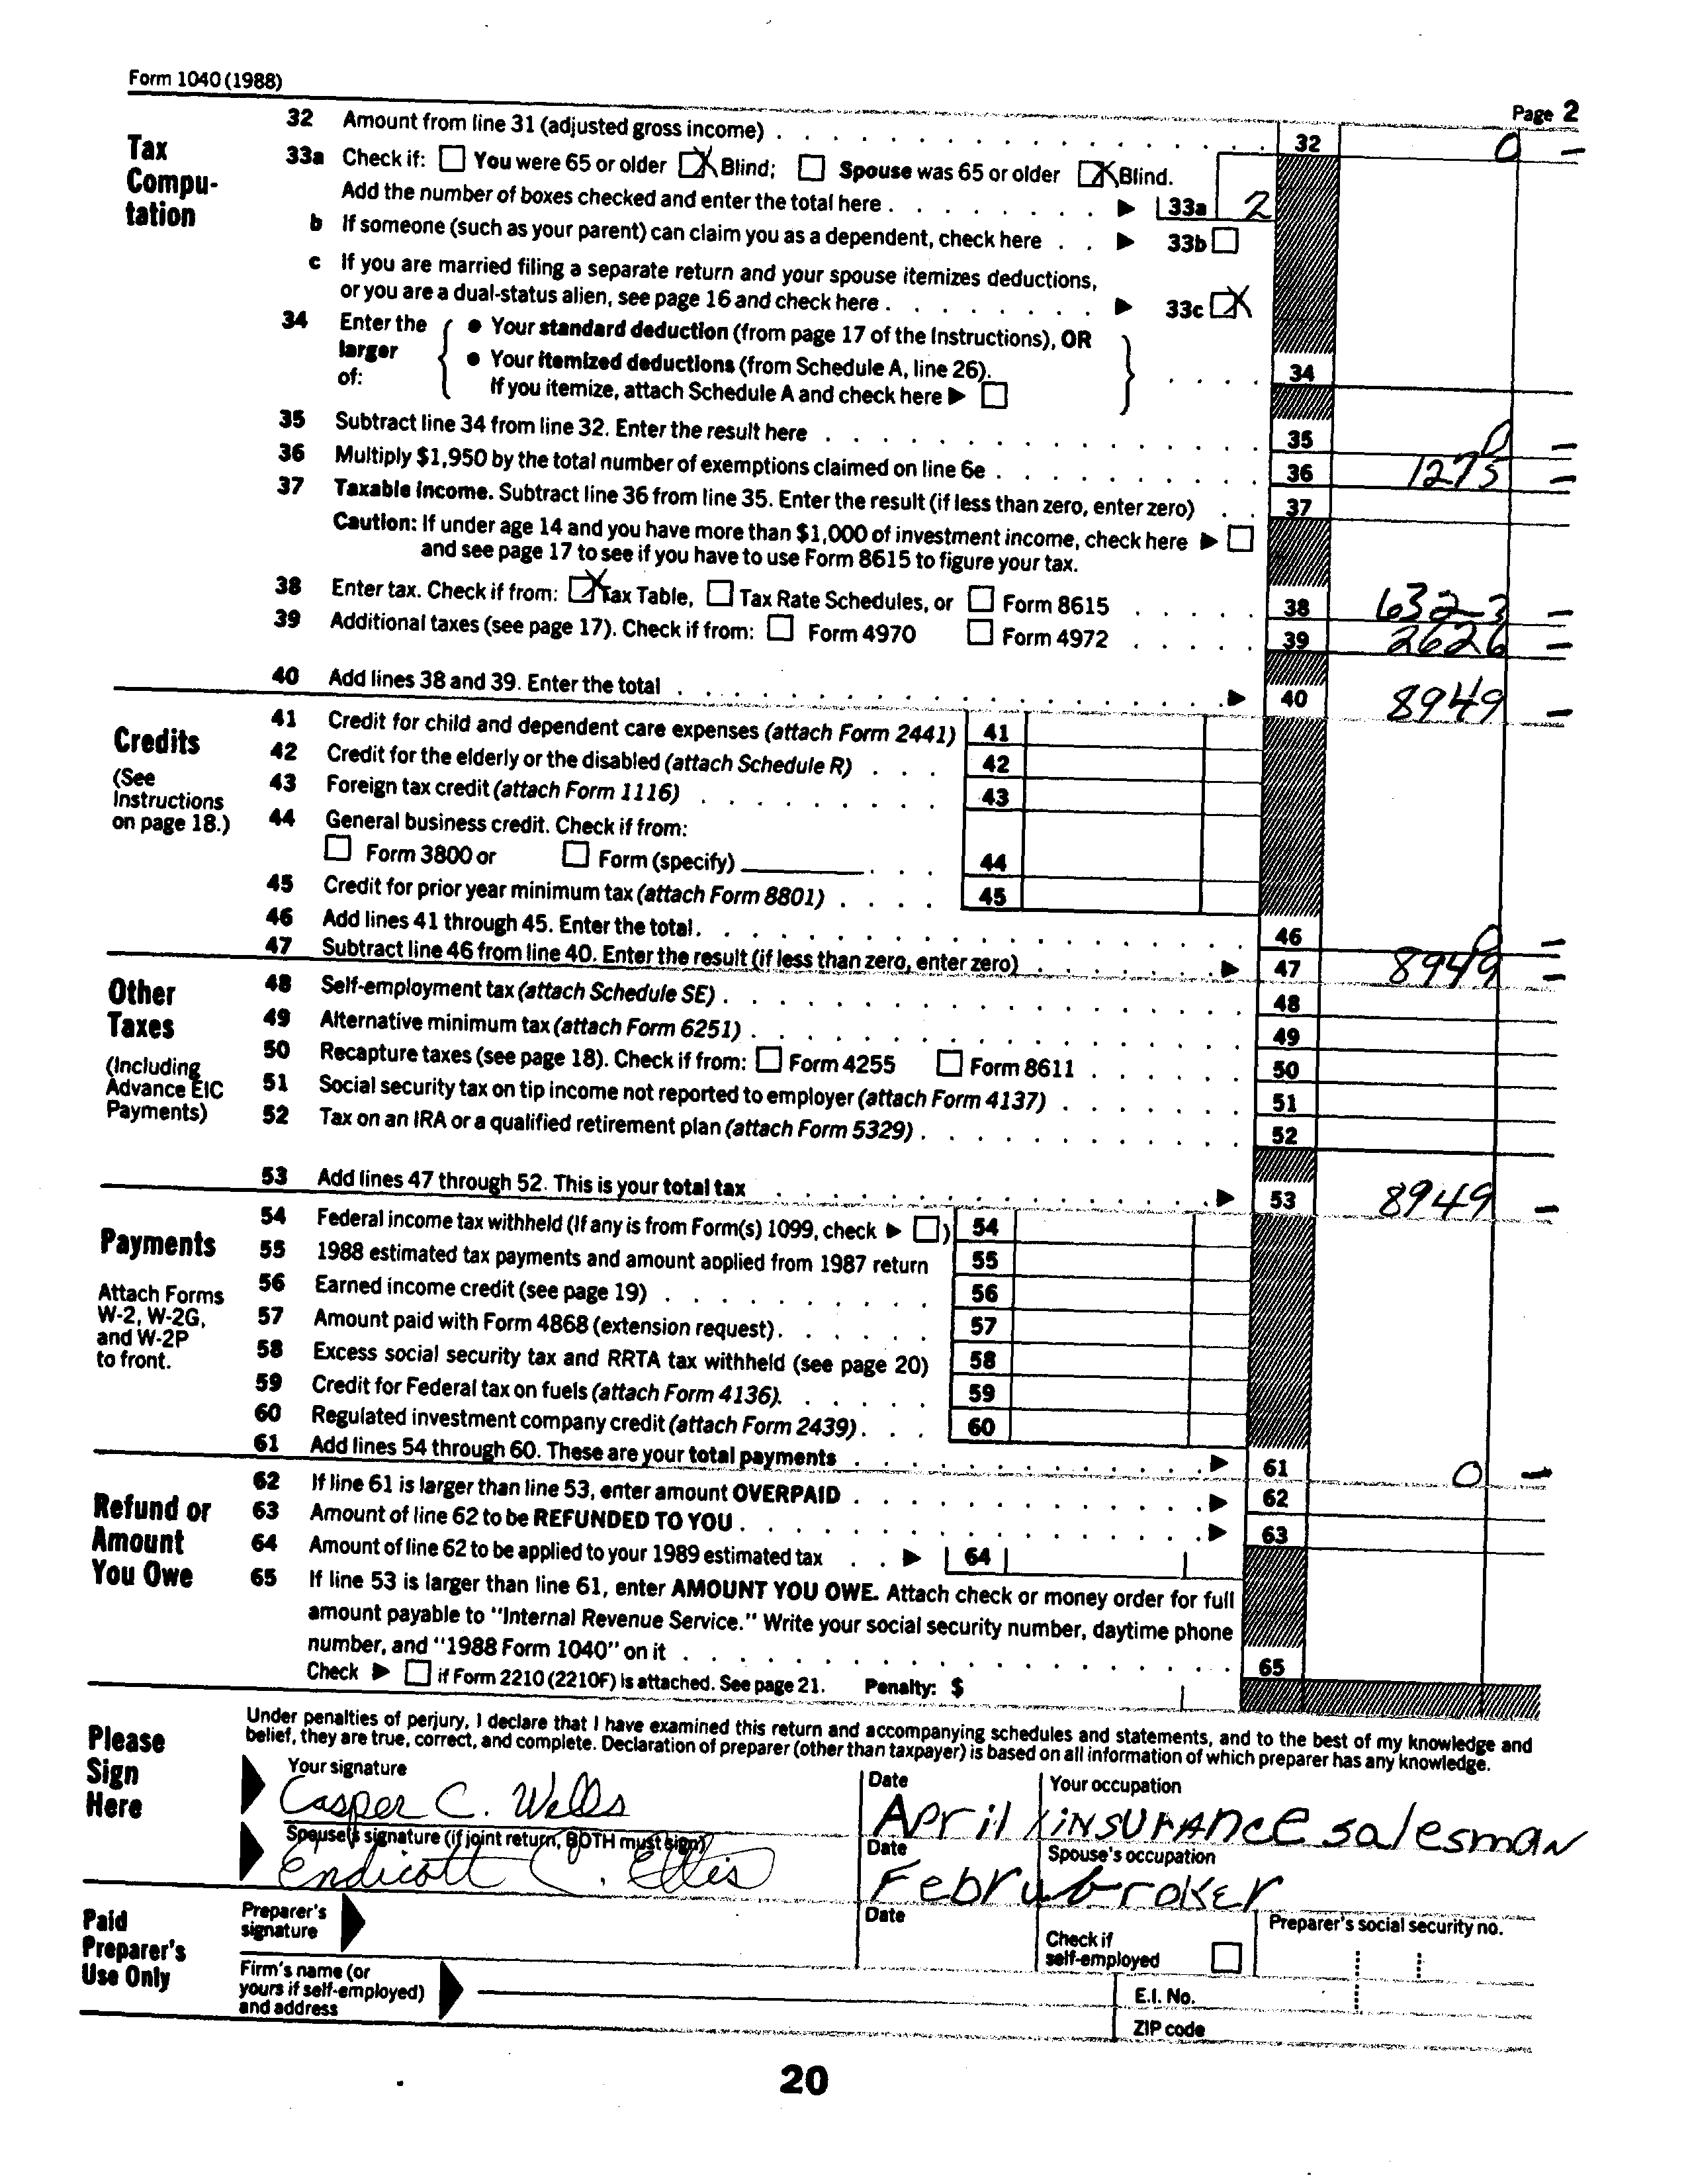 Form 1040 (1988)
Page 2
Tax Compu-tation
32 Amount from line 31 (adjusted gross income) . . . 32 0 –
33a Check if: ☐ You were 65 or older ☒ Blind; ☐ Spouse was 65 or older ☒ Blind.
Add the number of boxes checked and enter the total here . . . ▶ 33a 2
b If someone (such as your parent) can claim you as a dependent, check here . . ▶ 33b ☐
c If you are married filing a separate return and your spouse itemizes deductions,
or you are a dual-status alien, see page 16 and check here . . . ▶ 33c ☒
34 Enter the larger of: { ● Your standard deduction (from page 17 of the Instructions), OR
● Your itemized deductions (from Schedule A, line 26).
If you itemize, attach Schedule A and check here ▶ ☐ } . . . 34
35 Subtract line 34 from line 32. Enter the result here . . . 35 0 –
36 Multiply $1,950 by the total number of exemptions claimed on line 6e . . . 36 1275 –
37 Taxable income. Subtract line 36 from line 35. Enter the result (if less than zero, enter zero) . . 37
Caution: If under age 14 and you have more than $1,000 of investment income, check here ▶ ☐
and see page 17 to see if you have to use Form 8615 to figure your tax.
38 Enter tax. Check if from: ☒ Tax Table, ☐ Tax Rate Schedules, or ☐ Form 8615 . . . 38 6323 –
39 Additional taxes (see page 17). Check if from: ☐ Form 4970 ☐ Form 4972 . . . 39 2626 –
40 Add lines 38 and 39. Enter the total . . . ▶ 40 8949 –
Credits
(See Instructions on page 18.)
41 Credit for child and dependent care expenses (attach Form 2441) 41
42 Credit for the elderly or the disabled (attach Schedule R) . . . 42
43 Foreign tax credit (attach Form 1116) . . . 43
44 General business credit. Check if from:
☐ Form 3800 or ☐ Form (specify) ______ . . . 44
45 Credit for prior year minimum tax (attach Form 8801) . . . 45
46 Add lines 41 through 45. Enter the total . . . 46 0 –
47 Subtract line 46 from line 40. Enter the result (if less than zero, enter zero) . . . ▶ 47 8949 –
Other Taxes
(Including Advance EIC Payments)
48 Self-employment tax (attach Schedule SE) . . . 48
49 Alternative minimum tax (attach Form 6251) . . . 49
50 Recapture taxes (see page 18). Check if from: ☐ Form 4255 ☐ Form 8611 . . . 50
51 Social security tax on tip income not reported to employer (attach Form 4137) . . . 51
52 Tax on an IRA or a qualified retirement plan (attach Form 5329) . . . 52
53 Add lines 47 through 52. This is your total tax . . . ▶ 53 8949 –
Payments
Attach Forms W-2, W-2G, and W-2P to front.
54 Federal income tax withheld (If any is from Form(s) 1099, check ▶ ☐) 54
55 1988 estimated tax payments and amount applied from 1987 return 55
56 Earned income credit (see page 19) . . . 56
57 Amount paid with Form 4868 (extension request) . . . 57
58 Excess social security tax and RRTA tax withheld (see page 20) 58
59 Credit for Federal tax on fuels (attach Form 4136). . . . 59
60 Regulated investment company credit (attach Form 2439) . . . 60
61 Add lines 54 through 60. These are your total payments . . . ▶ 61 0 –
Refund or Amount You Owe
62 If line 61 is larger than line 53, enter amount OVERPAID . . . ▶ 62
63 Amount of line 62 to be REFUNDED TO YOU . . . ▶ 63
64 Amount of line 62 to be applied to your 1989 estimated tax . . ▶ 64
65 If line 53 is larger than line 61, enter AMOUNT YOU OWE. Attach check or money order for full
amount payable to "Internal Revenue Service." Write your social security number, daytime phone
number, and "1988 Form 1040" on it . . . 65
Check ▶ ☐ if Form 2210 (2210F) is attached. See page 21. Penalty: $
Please Sign Here
Under penalties of perjury, I declare that I have examined this return and accompanying schedules and statements, and to the best of my knowledge and
belief, they are true, correct, and complete. Declaration of preparer (other than taxpayer) is based on all information of which preparer has any knowledge.
Your signature Date Your occupation
Casper C. Wells April insurance salesman
Spouse's signature (if joint return, BOTH must sign) Date Spouse's occupation
Endicott C. Ellis Febru broker
Paid Preparer's Use Only
Preparer's signature Date Check if self-employed ☐ Preparer's social security no.
Firm's name (or yours if self-employed) and address
E.I. No.
ZIP code
20